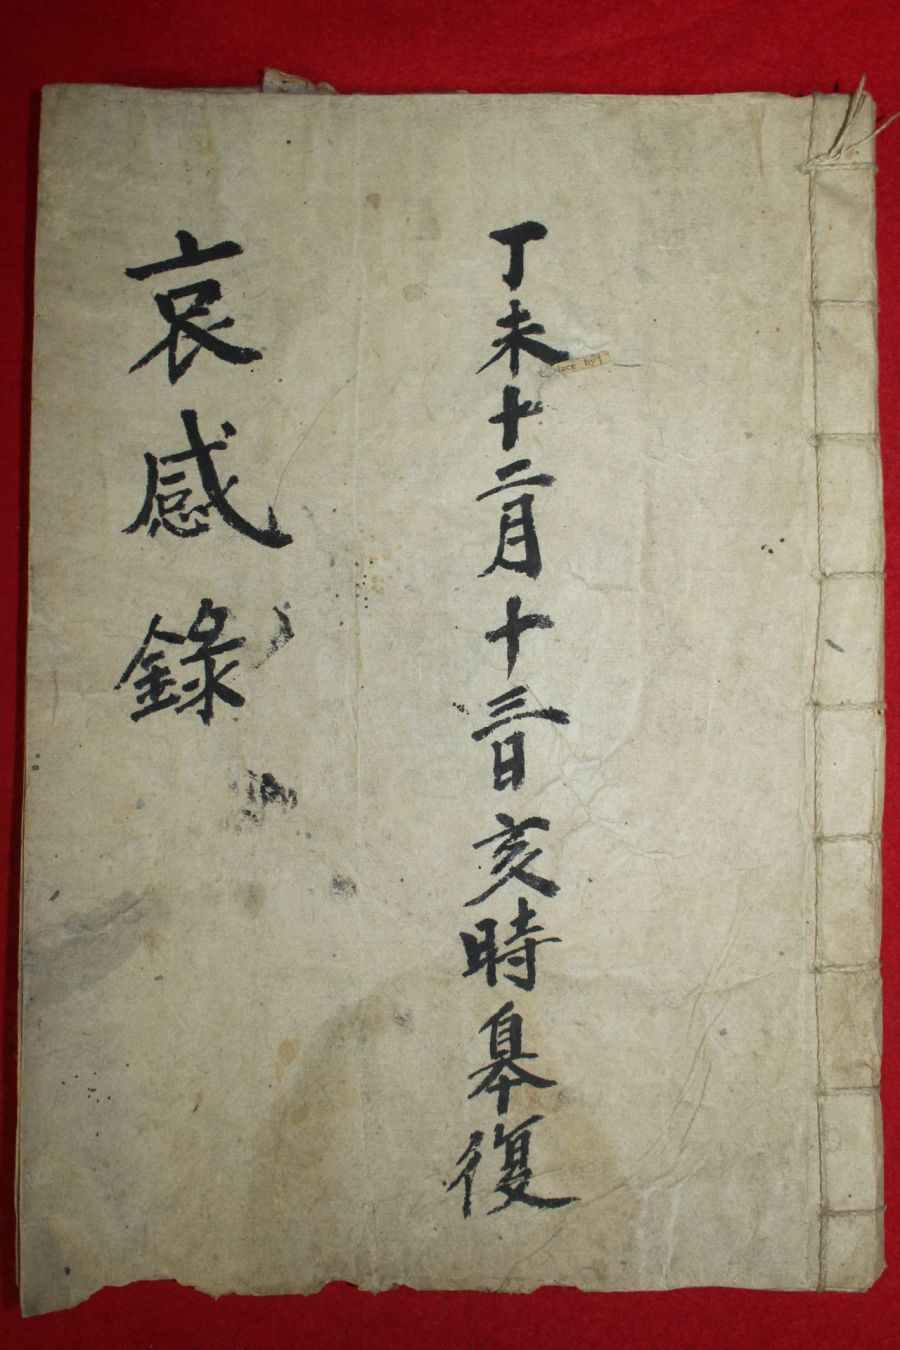 丁未十二月十三日亥時皐復
哀感錄
by